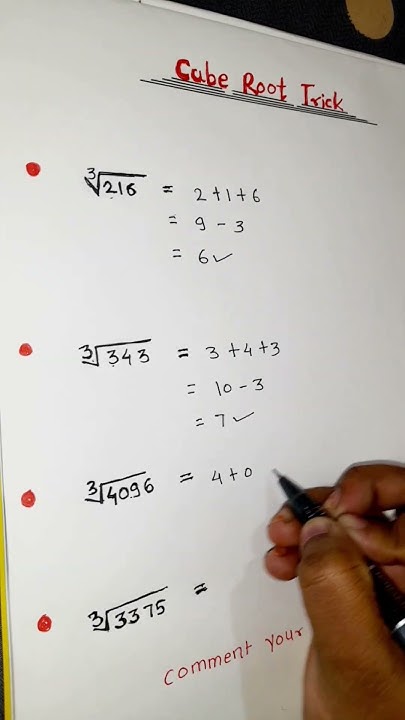 Cube Root Trick
∛216 = 2+1+6
= 9 - 3
= 6✓
∛343 = 3+4+3
= 10-3
= 7✓
∛4096 = 4+0
∛3375 =
comment your